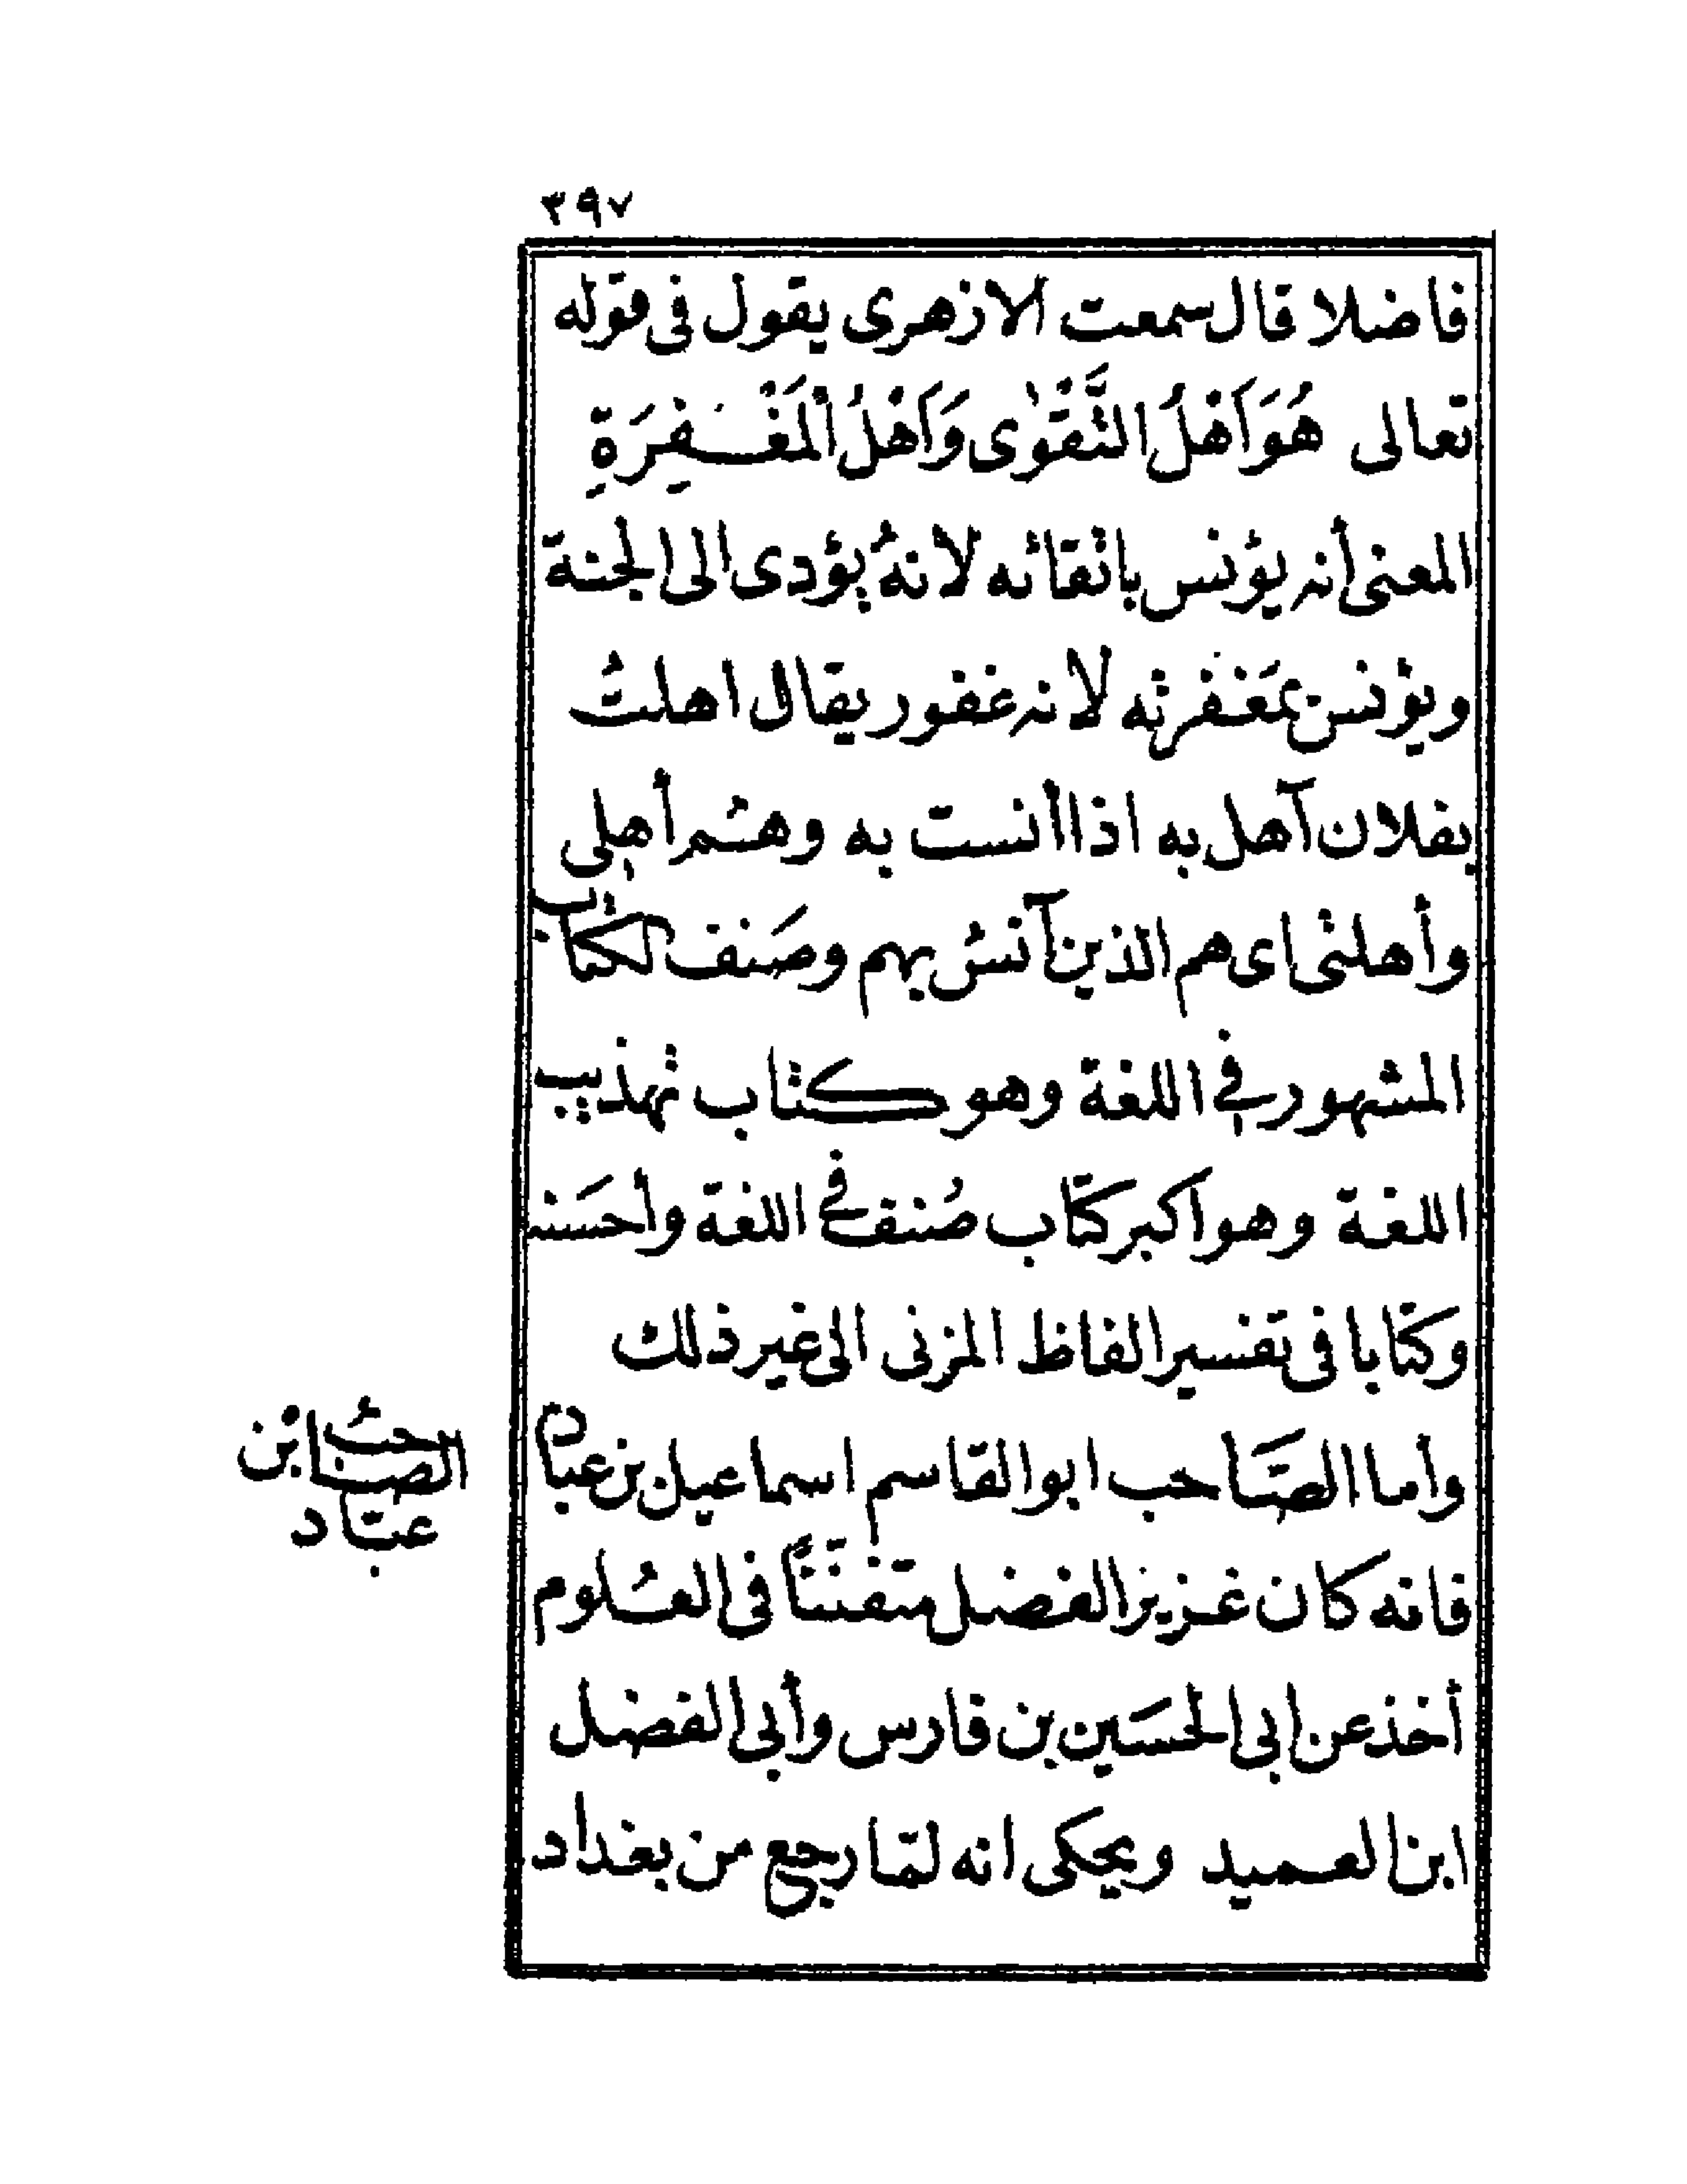 ٣٩٧
فاضلا قال سمعت الازهرى يقول فى قوله
تعالى هُوَ اَهْلُ التَّقْوٰى وَاَهْلُ الْمَغْفِرَةِ
المعنى أنه يؤنس باتقائه لانهُ يؤدى الى الجنة
ويؤنس بمَغفرته لانه غفور يقال اهلتُ
بفلان آهل به اذا أنست به وهم أهلى
وأهلتى اى هم الذين آنسُ بهم وصَنف الكتاب
المشهور فى اللغة وهو كتاب تهذيب
اللغة وهو اكبر كتاب صُنف فى اللغة وأحسَنه
وكتابا فى تفسير الفاظ المزنى الى غير ذلك
وأما الصّاحب ابو القاسم اسماعيل بن عباد
فانه كان غزيز الفضل متفننًا فى العُلوم
أخذ عن ابى الحسَين بن فارس وأبى الفضل
ابن العميد ويحكى انه لمّا رجع من بغداد
الصاحبُ ابن
عبّاد